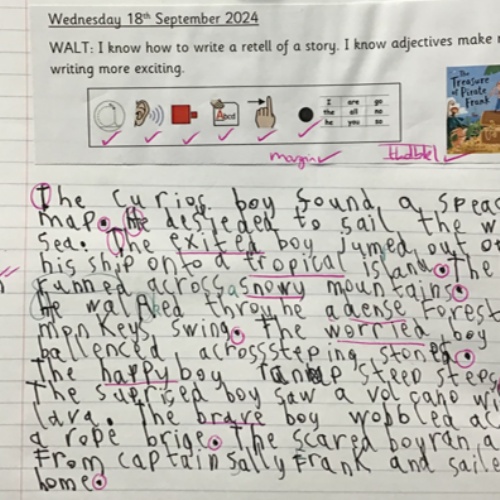 Wednesday 18th September 2024
WALT: I know how to write a retell of a story. I know adjectives make
writing more exciting.
I are go
the all no
he you so
Abcd
The Treasure of Pirate Frank
margin
The curios boy found a
map. He desieded to sail the
Sea. The exited boy jumed out
his ship onto a tropical Island. The
runned across snowy mountains.
He walked throughe a dense Forest
monkeys swing. The worried boy
ballenced acrosssteping stones.
The happy boy ran up steep steps
The suprised boy saw a volcano
lava. The brave boy wobbled
a rope brige. The scared boy ran
From captain sally Frank and
home.